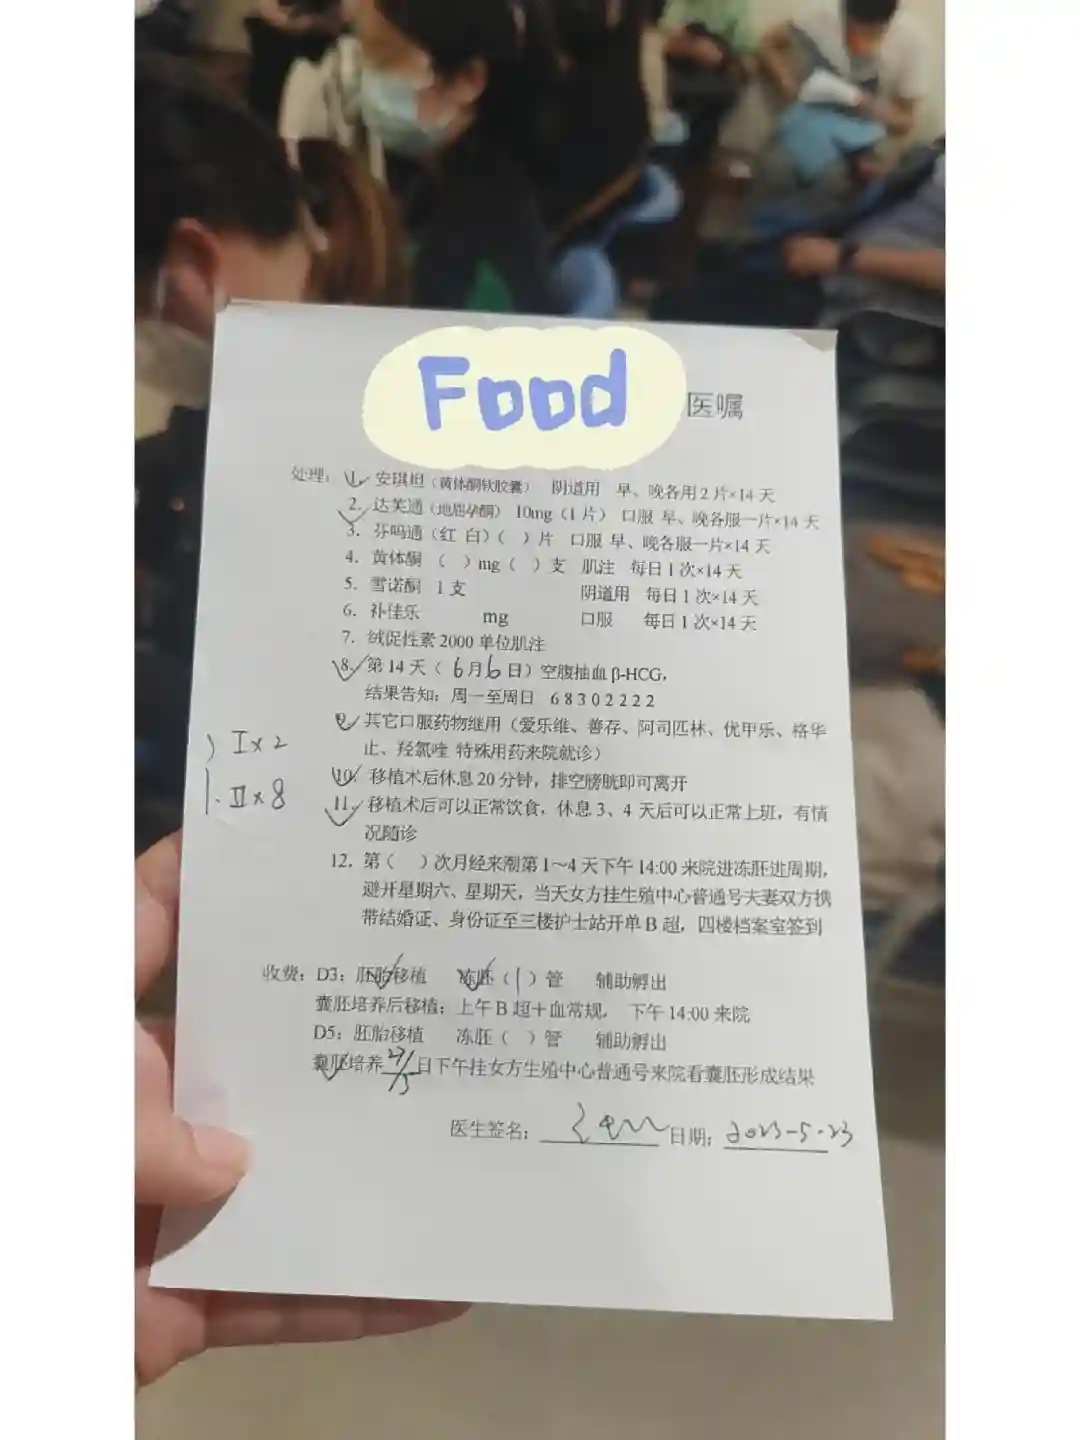 Food 医嘱
处理: 1. 安琪坦(黄体酮软胶囊) 阴道用 早、晚各用2片×14天
2. 达芙通(地屈孕酮) 10mg(1片) 口服 早、晚各服一片×14天
3. 芬吗通(红 白)( )片 口服 早、晚各服一片×14天
4. 黄体酮 ( )mg( )支 肌注 每日1次×14天
5. 雪诺酮 1支 阴道用 每日1次×14天
6. 补佳乐 mg 口服 每日1次×14天
7. 绒促性素2000单位肌注
8. 第14天(6月6日)空腹抽血β-HCG,
结果告知: 周一至周日 68302222
9. 其它口服药物继用(爱乐维、善存、阿司匹林、优甲乐、格华
止、羟氯喹 特殊用药来院就诊)
I×2
10. 移植术后休息20分钟, 排空膀胱即可离开
1. II×8
11. 移植术后可以正常饮食, 休息3、4天后可以正常上班, 有情
况随诊
12. 第( )次月经来潮第1~4天下午14:00来院进冻胚进周期,
避开星期六、星期天, 当天女方挂生殖中心普通号夫妻双方携
带结婚证、身份证至三楼护士站开单B超, 四楼档案室签到
收费: D3: 胚胎移植 冻胚(1)管 辅助孵出
囊胚培养后移植: 上午B超+血常规, 下午14:00来院
D5: 胚胎移植 冻胚( )管 辅助孵出
囊胚培养 日下午挂女方生殖中心普通号来院看囊胚形成结果
医生签名: 日期: 2023-5-23